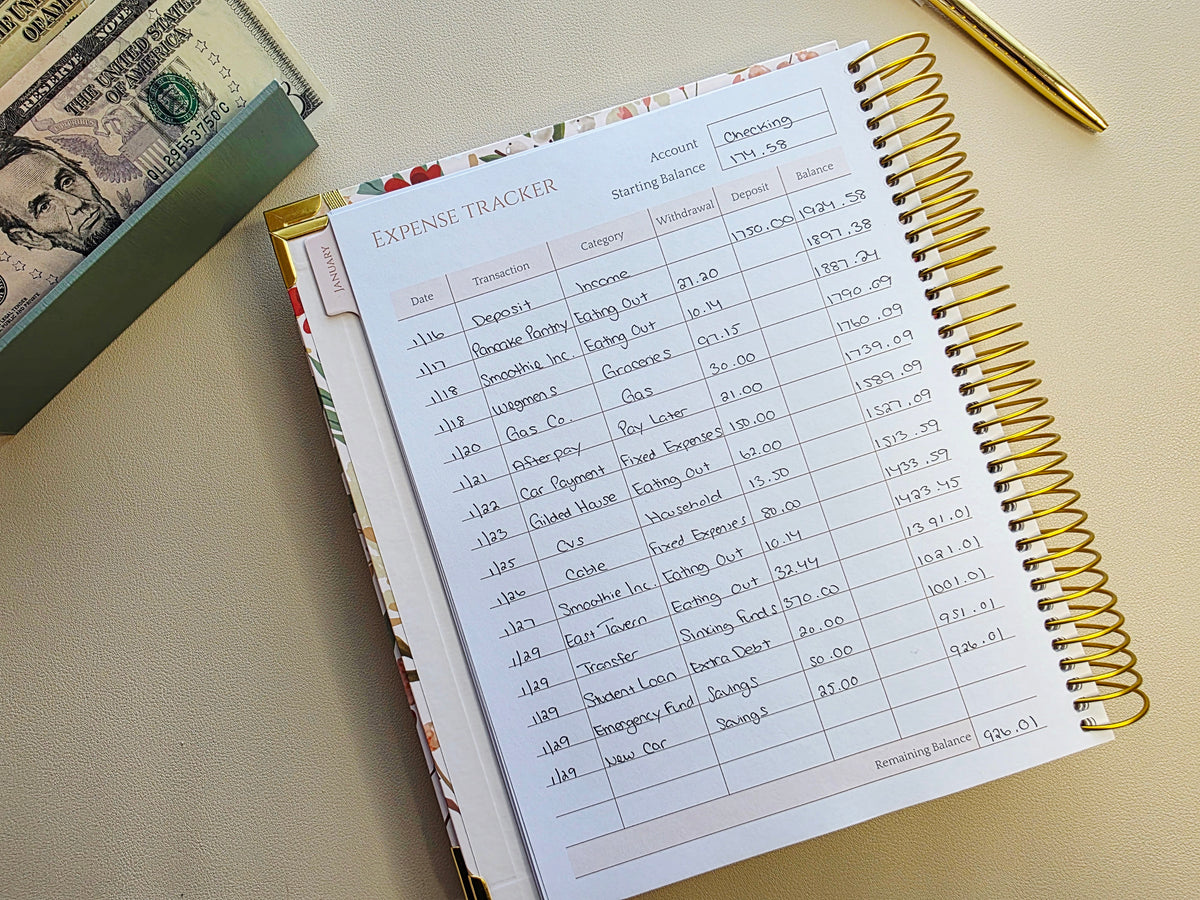 THE UNITED STATES
OF AMERICA
RESERVE NOTE
THE UNITED STATES
OF AMERICA
QH29553750C
JANUARY
EXPENSE TRACKER
Account Checking
Starting Balance 174.58
Date Transaction Category Withdrawal Deposit Balance
1/16 Deposit Income 1750.00 1924.58
1/17 Pancake Pantry Eating Out 27.20 1897.38
1/18 Smoothie Inc. Eating Out 10.14 1887.24
1/18 Wegmens Groceries 97.15 1790.09
1/20 Gas Co. Gas 30.00 1760.09
1/21 Afterpay Pay Later 21.00 1739.09
1/22 Car Payment Fixed Expenses 150.00 1589.09
1/23 Gilded House Eating Out 62.00 1527.09
1/25 CVS Household 13.50 1513.59
1/26 Cable Fixed Expenses 80.00 1433.59
1/27 Smoothie Inc. Eating Out 10.14 1423.45
1/29 East Tavern Eating Out 32.44 1391.01
1/29 Transfer Sinking Funds 370.00 1021.01
1/29 Student Loan Extra Debt 20.00 1001.01
1/29 Emergency Fund Savings 50.00 951.01
1/29 New Car Savings 25.00 926.01
Remaining Balance 926.01